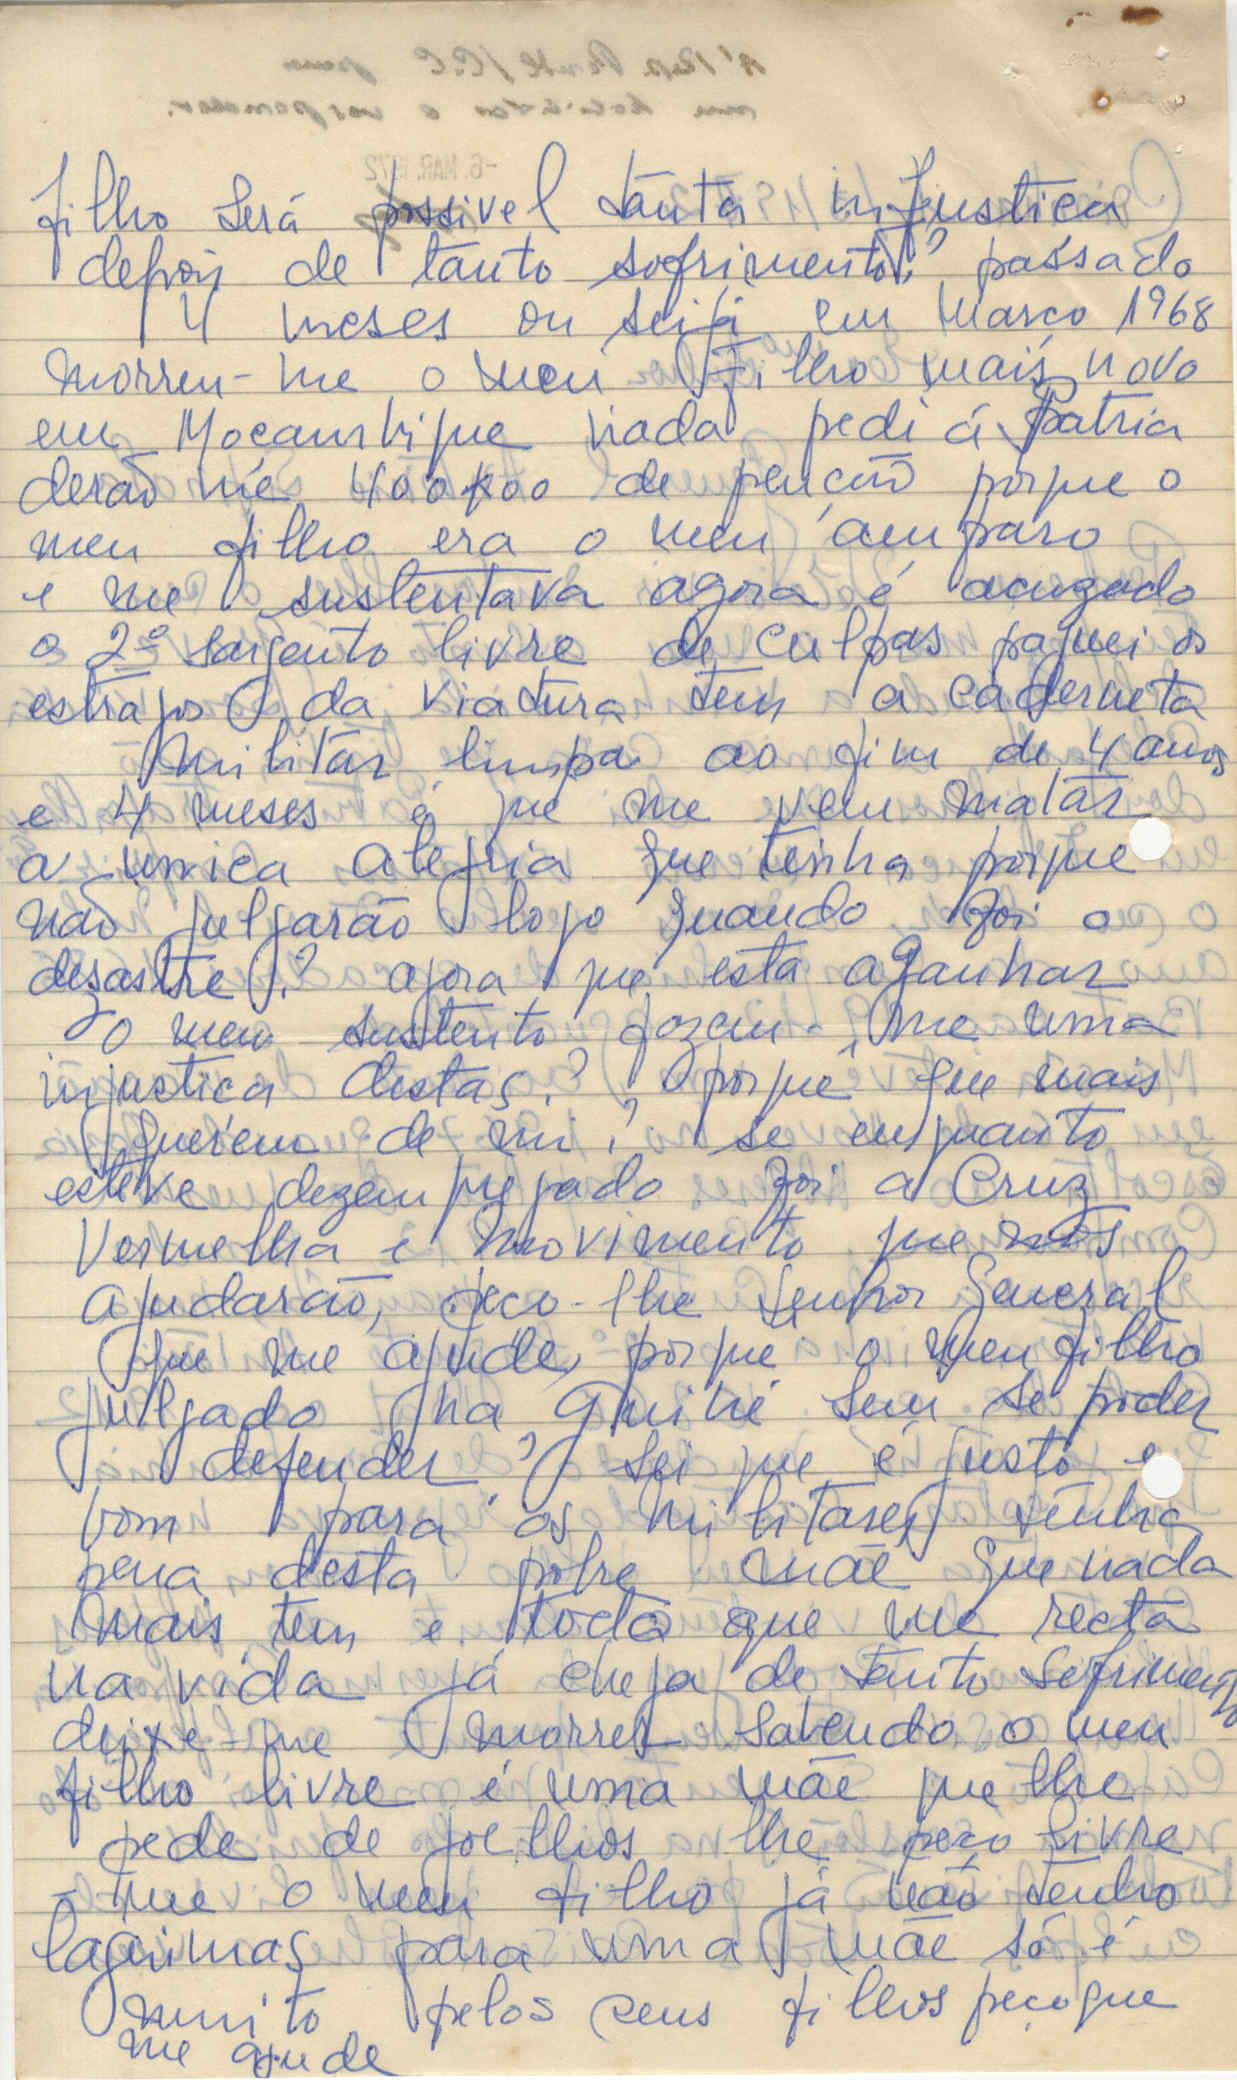 filho será possivel tanta injustica
depois de tanto sofrimento? passádo
4 meses ou seija em Março 1968
morreu-me o meu Filho mais novo
em Moçambique nada pedi á Patria
derão me 400$00 de penção porque o
meu filho era o meu amparo
e me sustentava agora é acuzado
o 2º sargento livre de culpas paguei os
estragos da viatura tem a caderneta
militar limpa ao fim de 4 anos
e 4 meses é que me vem matar
a unica alegria que tinha porque
não julgarão logo quando foi o
dezastre? agora que esta a ganhar
o meu sustento fazem-me uma
injustica destas? porque que mais
querem de mi? se enquanto
esteve dezempregado foi a Cruz
Vermelha e movimento que nos
ajudarão, peco-lhe senhor General
que me ajude, porque o meu filho
julgado na Guiné sem se poder
defender? sei que é justo e
bom para os militares tenha
pena desta pobre mãe que nada
mais tem e toda que me resta
na vida já chega de tanto sofrimento
deixe-me morrer sabendo o meu
filho livre é uma mãe que lhe
pede de joelhos lhe peço livre
-me o meu filho já não tenho
lagrimas para uma mãe só é
muito pelos seus filhos peço que
me ajude
-6. MAR. 1972